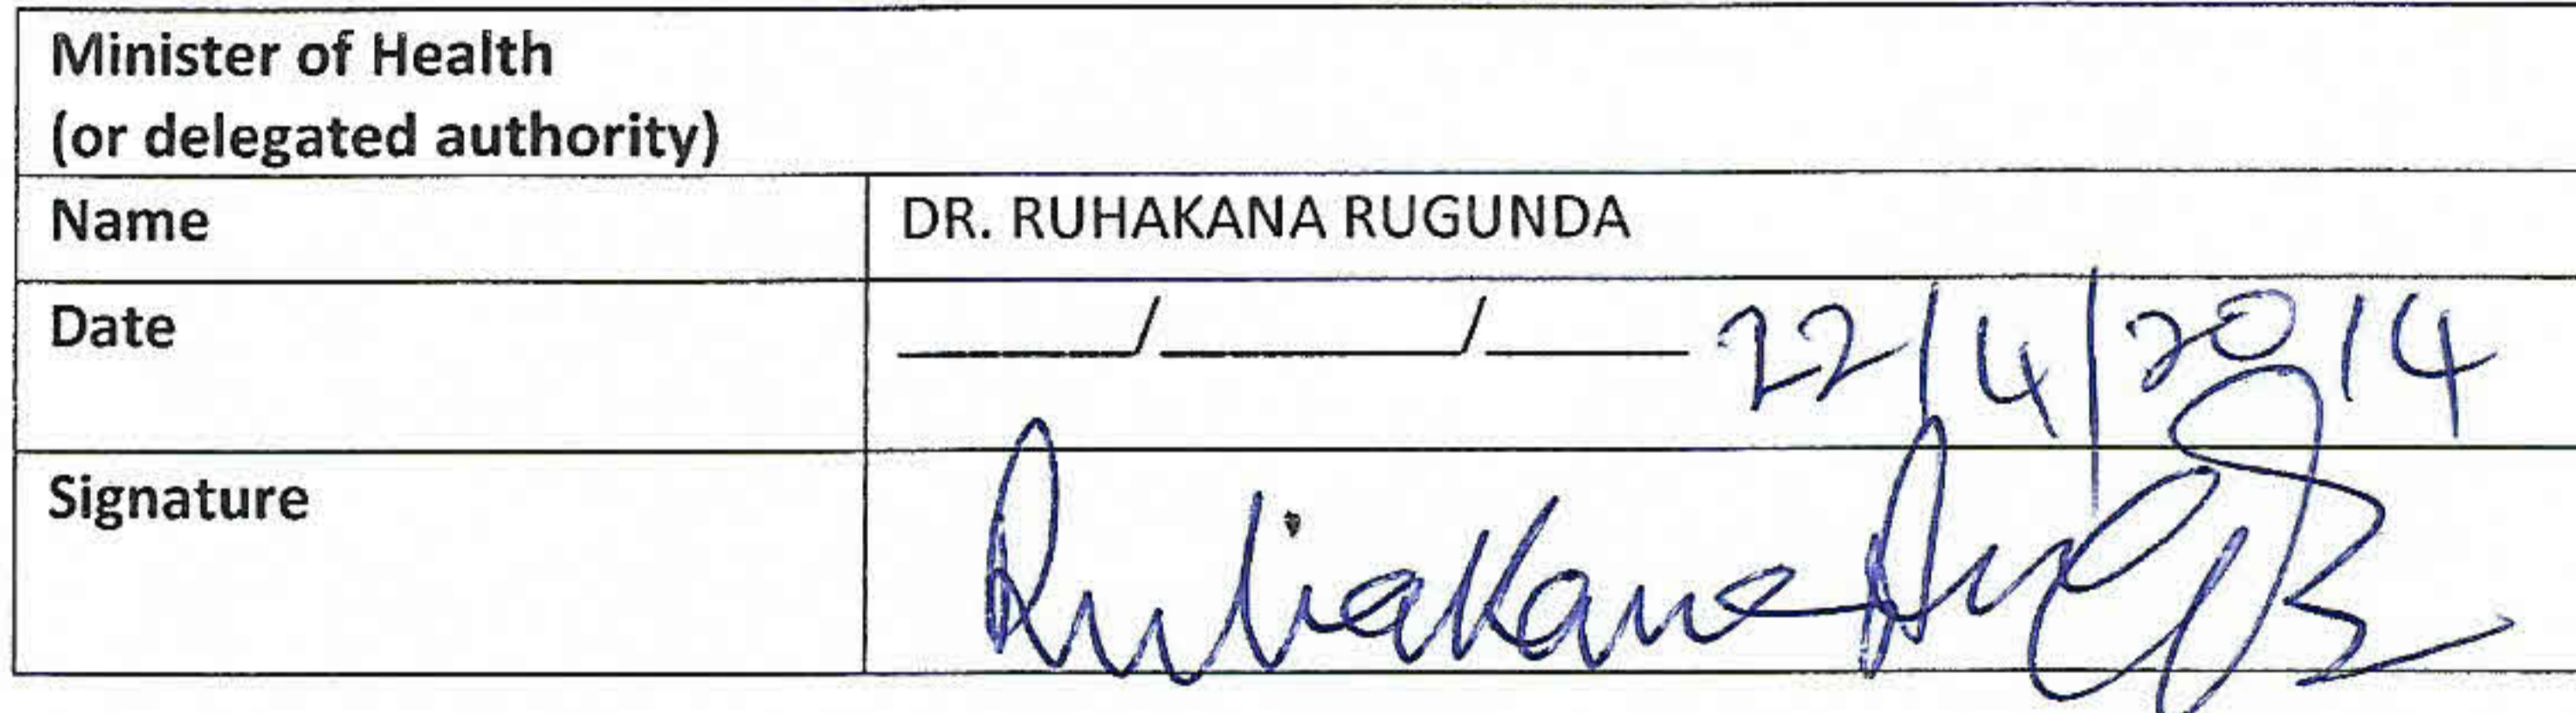 Minister of Health
(or delegated authority)
Name DR. RUHAKANA RUGUNDA
Date ____/____/____ 22/4/2014
Signature Ruhakana